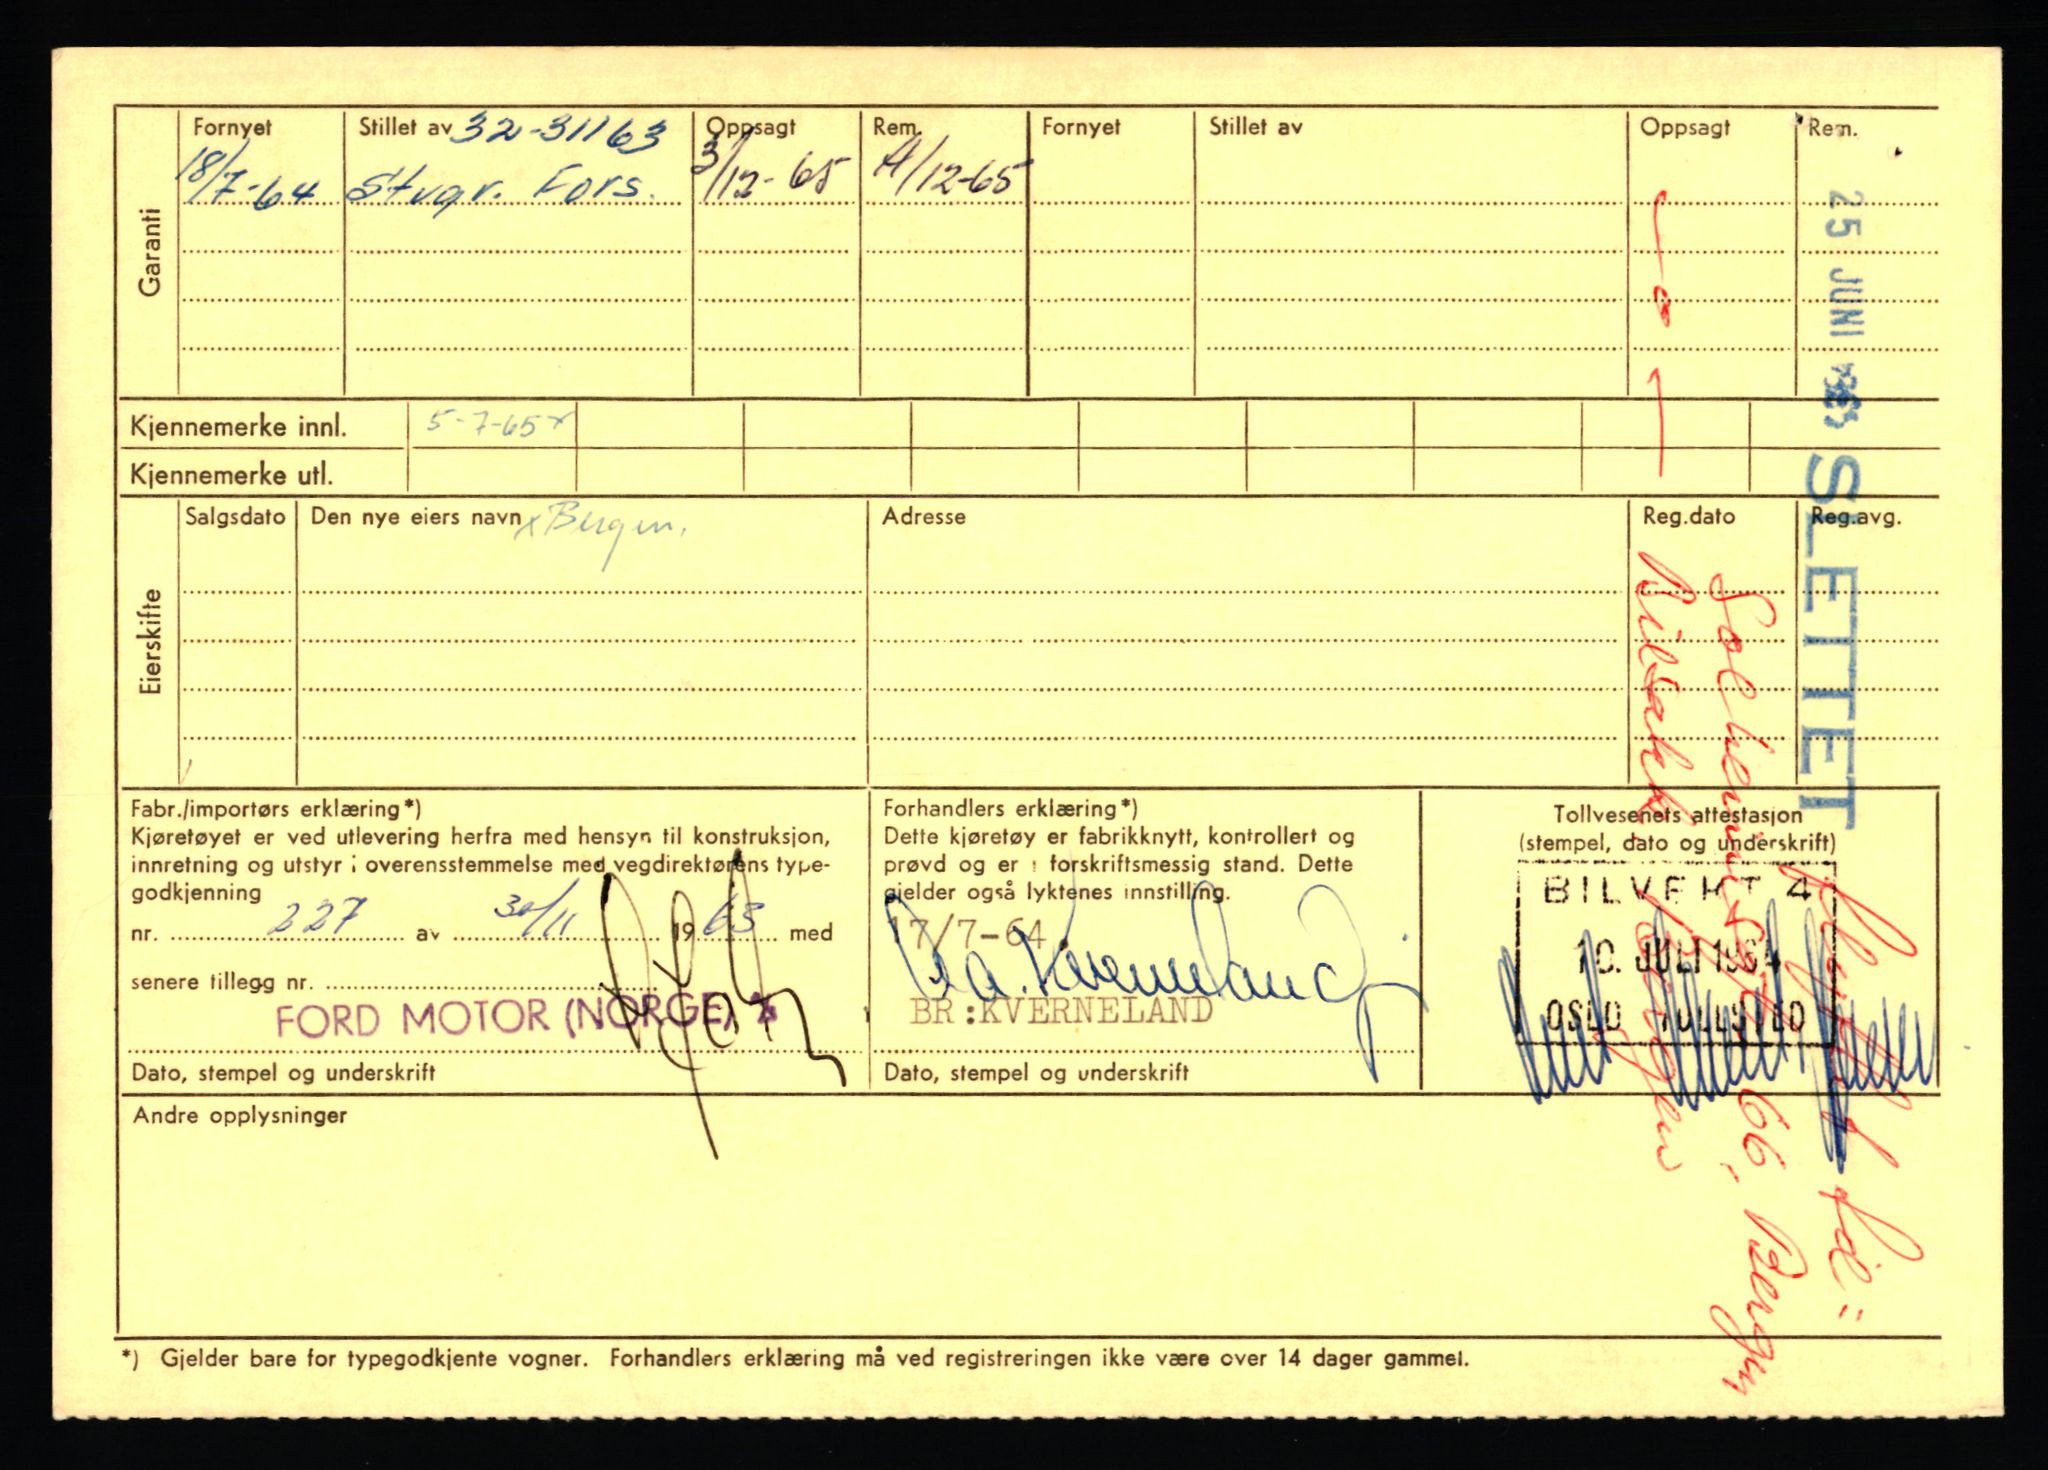 Garanti
Fornyet Stillet av 32-31163 Oppsagt Rem. Fornyet Stillet av Oppsagt Rem.
18/7-64 Stvgr. Fors. 3/12-65 A/12-65
25 JUNI
SLETTET
Kjennemerke innl. 5-7-65 x
Kjennemerke utl.
Eierskifte
Salgsdato Den nye eiers navn x Bergen. Adresse Reg.dato Reg.avg.
Fabr./importørs erklæring*)
Kjøretøyet er ved utlevering herfra med hensyn til konstruksjon,
innretning og utstyr i overensstemmelse med vegdirektørens type-
godkjenning
nr. 227 av 30/11 1963 med
senere tillegg nr.
FORD MOTOR (NORGE)
Dato, stempel og underskrift
Forhandlers erklæring*)
Dette kjøretøy er fabrikknytt, kontrollert og
prøvd og er i forskriftsmessig stand. Dette
gjelder også lyktenes innstilling.
17/7-64
BR:KVERNELAND
Dato, stempel og underskrift
Tollvesenets attestasjon
(stempel, dato og underskrift)
BILVEKT 4
10. JULI 1964
OSLO TOLLSTED
66, Bergen
Bergen
Andre opplysninger
*) Gjelder bare for typegodkjente vogner. Forhandlers erklæring må ved registreringen ikke være over 14 dager gammel.